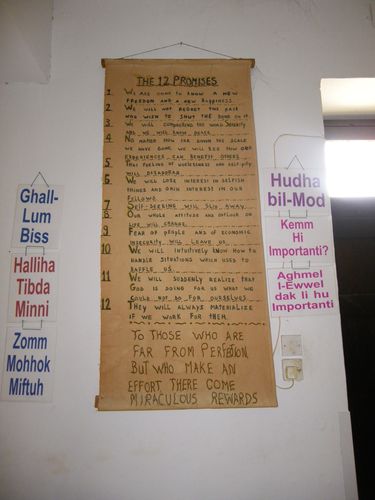 Ghall-
Lum
Biss
Halliha
Tibda
Minni
Zomm
Mohhok
Miftuh
THE 12 PROMISES
1 WE ARE GOING TO KNOW A NEW
FREEDOM AND A NEW HAPPINESS.
2 WE WILL NOT REGRET THE PAST
NOR WISH TO SHUT THE DOOR ON IT.
3 WE WILL COMPREHEND THE WORD SERENITY
AND WE WILL KNOW PEACE.
4 NO MATTER HOW FAR DOWN THE SCALE
WE HAVE GONE WE WILL SEE HOW OUR
EXPERIENCES CAN BENEFIT OTHERS.
5 THAT FEELING OF USELESSNESS AND SELF-PITY
WILL
6 WE WILL LOSE INTEREST IN SELFISH
THINGS AND GAIN INTEREST IN OUR
FELLOWS.
7 SELF-SEEKING WILL SLIP AWAY.
8 OUR WHOLE ATTITUDE AND OUTLOOK ON
LIFE WILL CHANGE
9 FEAR OF PEOPLE AND OF ECONOMIC
INSECURITY WILL LEAVE US.
10 WE WILL INTUITIVELY KNOW HOW TO
HANDLE SITUATIONS WHICH USED TO
BAFFLE US.
11 WE WILL SUDDENLY REALIZE THAT
GOD IS DOING FOR US WHAT WE
COULD NOT DO FOR OURSELVES.
12 THEY WILL ALWAYS MATERIALIZE
IF WE WORK FOR THEM.
TO THOSE WHO ARE
FAR FROM PERFECTION
BUT WHO MAKE AN
EFFORT THERE COME
MIRACULOUS REWARDS
Hudha
bil-Mod
Kemm
Hi
Importanti?
Aghmel
l-Ewwel
dak li hu
Importanti